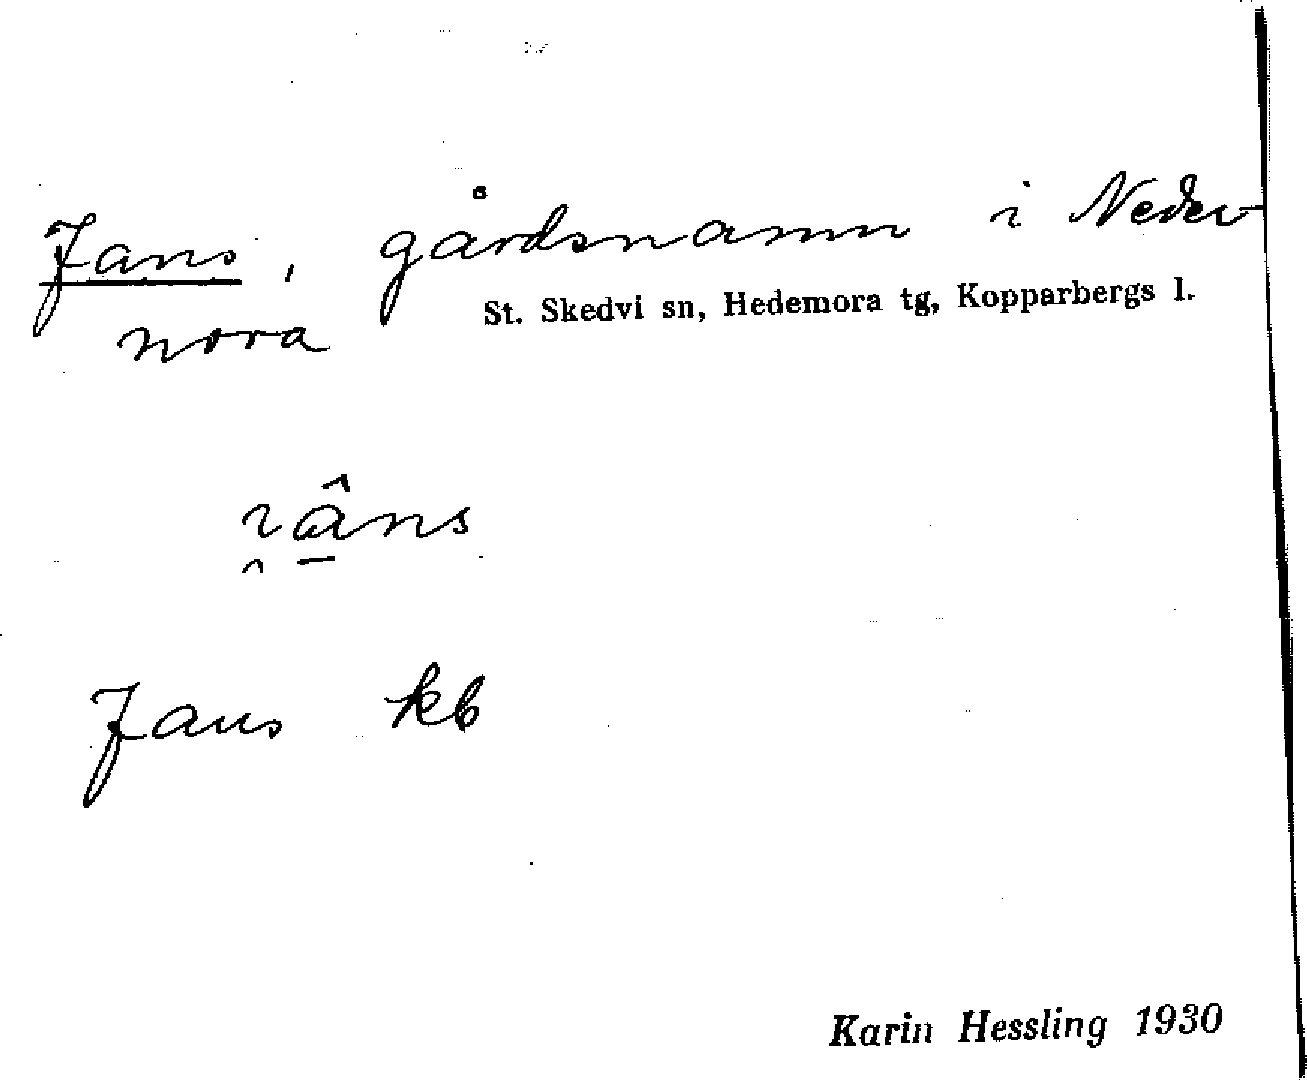 Jans, gårdsnamn i Neder-
nora
St. Skedvi sn, Hedemora tg, Kopparbergs l.
Jans kb
Karin Hessling 1930